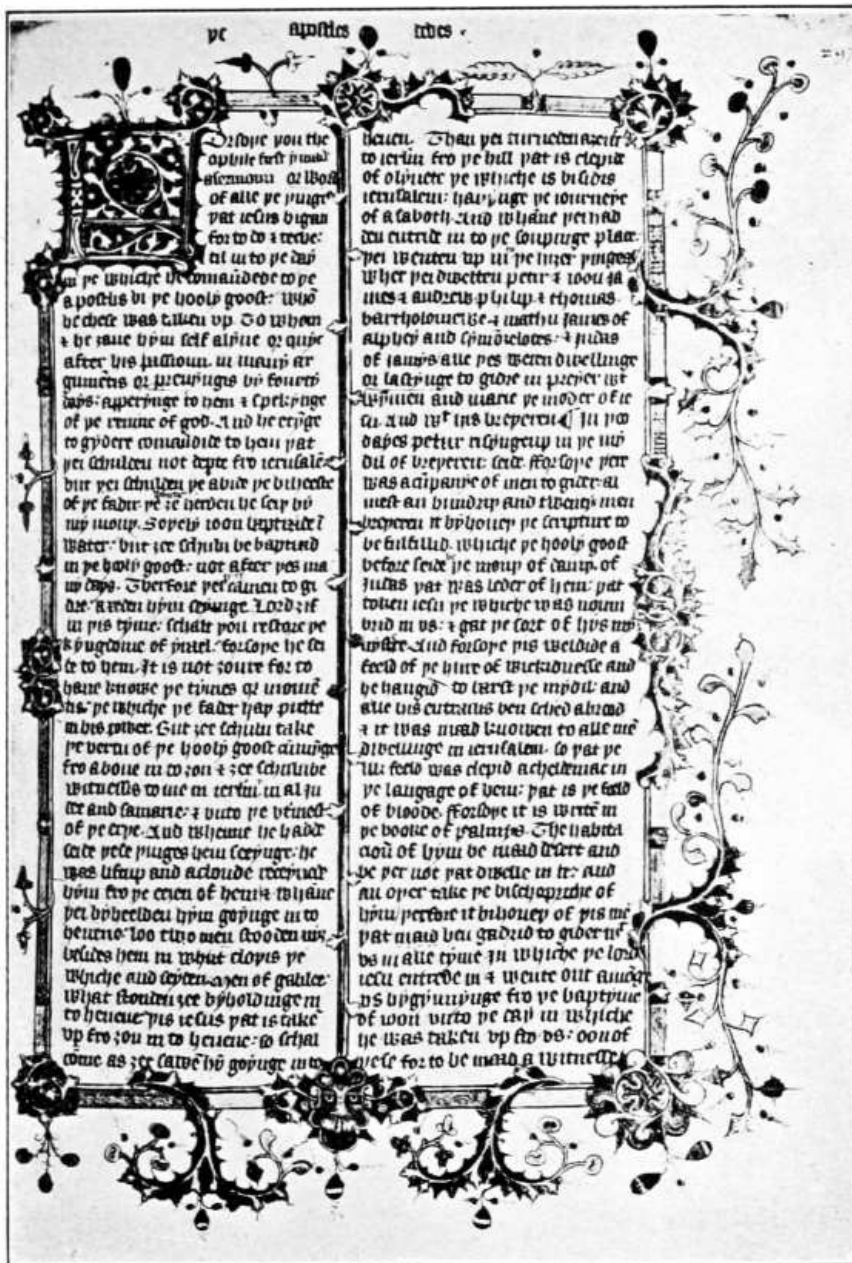 þe apostles dedes
Orsoþe þou the
ophile first y maad
a sermoun or word
of alle þe þinges
þat iesus bigan
for to do & teche
til in to þe day
in þe whiche he comaūdede to þe
apostlis bi þe hooly goost: whō
he chese was taken vp To whom
& he ȝaue hym self alyue or quyc
after his passioun in many ar
gumētis or preuyngis by fourty
days: apperynge to hem & spekynge
of þe rewme of god. And he etynge
to gydere comaūdide to hem þat
þei schulden not departe fro ierusalē
but þei schulden þe abide þe biheeste
of þe fadir þe ȝe herden he seiþ by
my mouþ. Soþely ioon baptiside ī
water: but ȝee schuln be baptisid
in þe hooly goost: not after þes ma
ny days. Therfore þei camen to gi
dre: axeden hym seyinge. Lord ȝif
in þis tyme: schalt þou restore þe
kyngdome of ysrael: forsoþe he sei
de to hem. It is not ȝoure for to
haue knowe þe tymes or momē
tis: þe whiche þe fader haþ putte
in his power. But ȝee schuln take
þe vertu of þe hooly goost comynge
fro aboue in to ȝou & ȝee schuln be
witnessis to me in ierlm in al ju
dee and samarie: & vnto þe vtmest
of þe erþe. And whenne he hadde
seide þese þinges hem seeynge: he
was liftup and a cloude receyuede
hym fro þe eyen of hem & whāne
þei byheelden hym goynge in to
heuene: loo two men stooden nyȝ
besides hem in whiit cloþis þe
whiche and seyden. Men of galilee
what stonden ȝee byholdinge in
to heuene þis iesus þat is take
vp fro ȝou in to heuene: so schal
come as ȝee sawē hȳ goynge in to
heuen. Than þei turneden aȝein
to ierlm fro þe hill þat is clepid
of olyuete þe whiche is bisidis
ierusalem: hauynge þe iourneye
of a saboth. And whāne þei had
den entride in to þe soupinge place
þei wenten vp in þe hiȝer þinges
wher þei dwelten petir & ioon ja
mes & andrew philip & thomas
bartholomewe & mathu james of
alphey and symō zelotes: & judas
of jamys alle þes weren dwellinge
or lastynge to gidre in preyer wt
wymmen and marie þe moder of ie
su. And wt his breþeren ¶ In þoo
dayes petur risynge up in þe my
dil of breþeren: seide. fforsoþe þere
was a cūpanye of men to gider: al
mest an hundriþ and twenty men
breþeren it byhoueþ þe scripture to
be fulfillid. whiche þe hooly goost
before seide þe mouþ of dauiþ. of
judas þat was leder of hem: þat
token iesu þe whiche was noum
brid in vs: & gat þe sort of hys my
nystre. And forsoþe þis weldide a
feeld of þe hire of wickidnesse and
he hangid to barst þe mydil: and
alle his entrailis ben sched abrood
& it was maad knowen to alle mē
dwellinge in ierusalem. so þat þe
ilk feeld was clepid acheldemac in
þe langage of hem: þat is þe feeld
of bloode. fforsoþe it is write in
þe booke of psalmys. The habita
cioū of hym be maid desert and
be þer not þat dwelle in it: and
an oþer take þe bischopriche of
hym þerfore it bihoueþ of þis mē
þat maid ben gadrid to gider wt
vs in alle tyme in whiche þe lord
iesu entrede in & wente out amōg
vs bygynnynge fro þe baptyme
of ioon vnto þe day in whiche
he was taken vp fro vs: oon of
þese for to be maad a witnesse